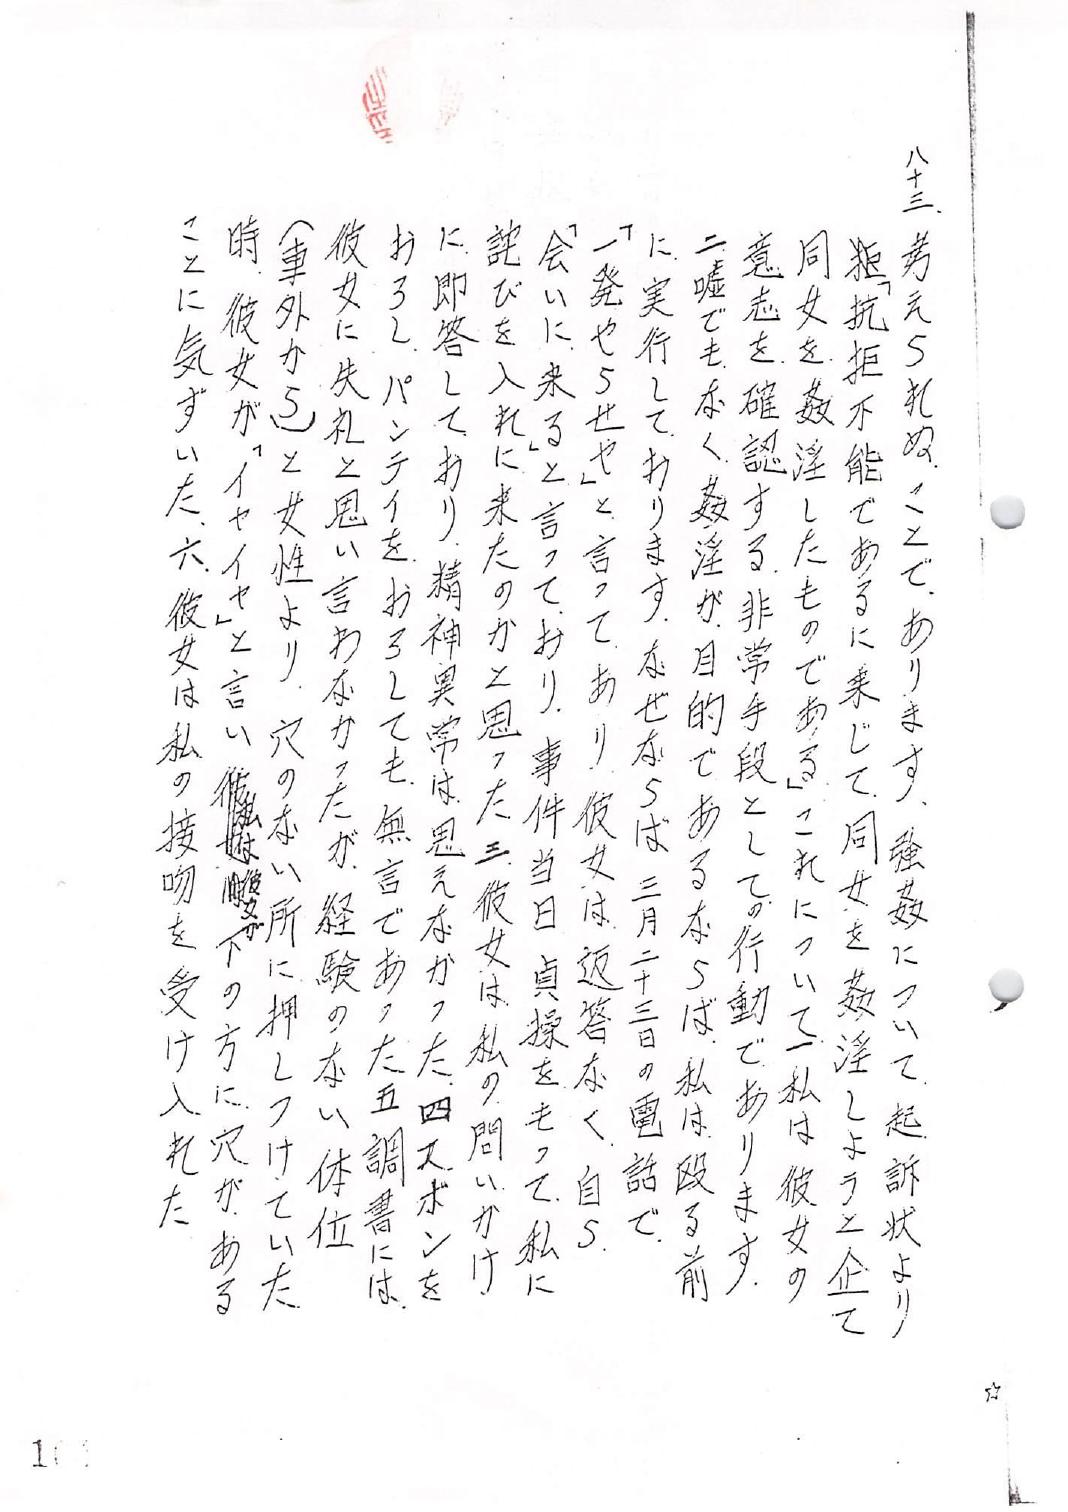 八十三、考えられぬ、ことで、あります、強姦について、起訴状より
「抗拒不能であるに乗じて、同女を姦淫しようと企て
同女を、姦淫したものである」これについて一私は彼女の
意志を、確認する、非常手段としての行動であります。
二嘘でもなく、姦淫が、目的であるならば、私は、殴る前
に、実行して、おります、なぜならば、三月二十三日の電話で、
「一発やらせや」と、言って、あり、彼女は、返答なく、自ら、
「会いに、来る」と言って、おり、事件当日、貞操をもって、私に
詫びを入れに来たのかと思った三、彼女は、私の問いかけ
に、即答して、おり、精神異常は、思えなかった、四ズボンを
おろし、パンティを、おろしても、無言であった五調書には、
彼女に失礼と思い言わなかったが、経験のない体位
(車外から)と女性より、穴のない所に押しつけていた
時、彼女が「イヤイヤ」と言い、私は彼女が下の方に、穴がある
ことに気ずいた、六、彼女は私の接吻を受け入れた
☆